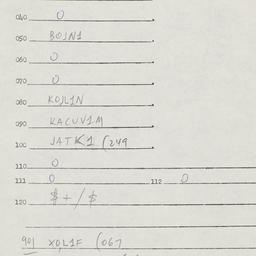 040 0
050 BOJN1
060 0
070 0
080 KOJL1N
090 KACUV1M
100 JATK1 (249
110 0
111 0 112 0
120 $+/$
901 XOL1F (067